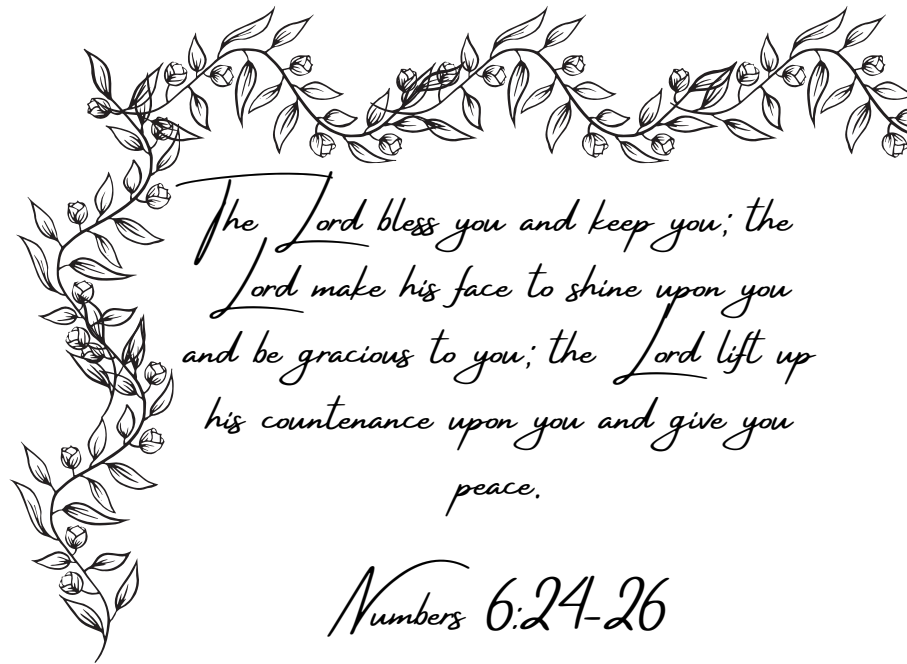 The Lord bless you and keep you; the
Lord make his face to shine upon you
and be gracious to you; the Lord lift up
his countenance upon you and give you
peace.
Numbers 6:24-26